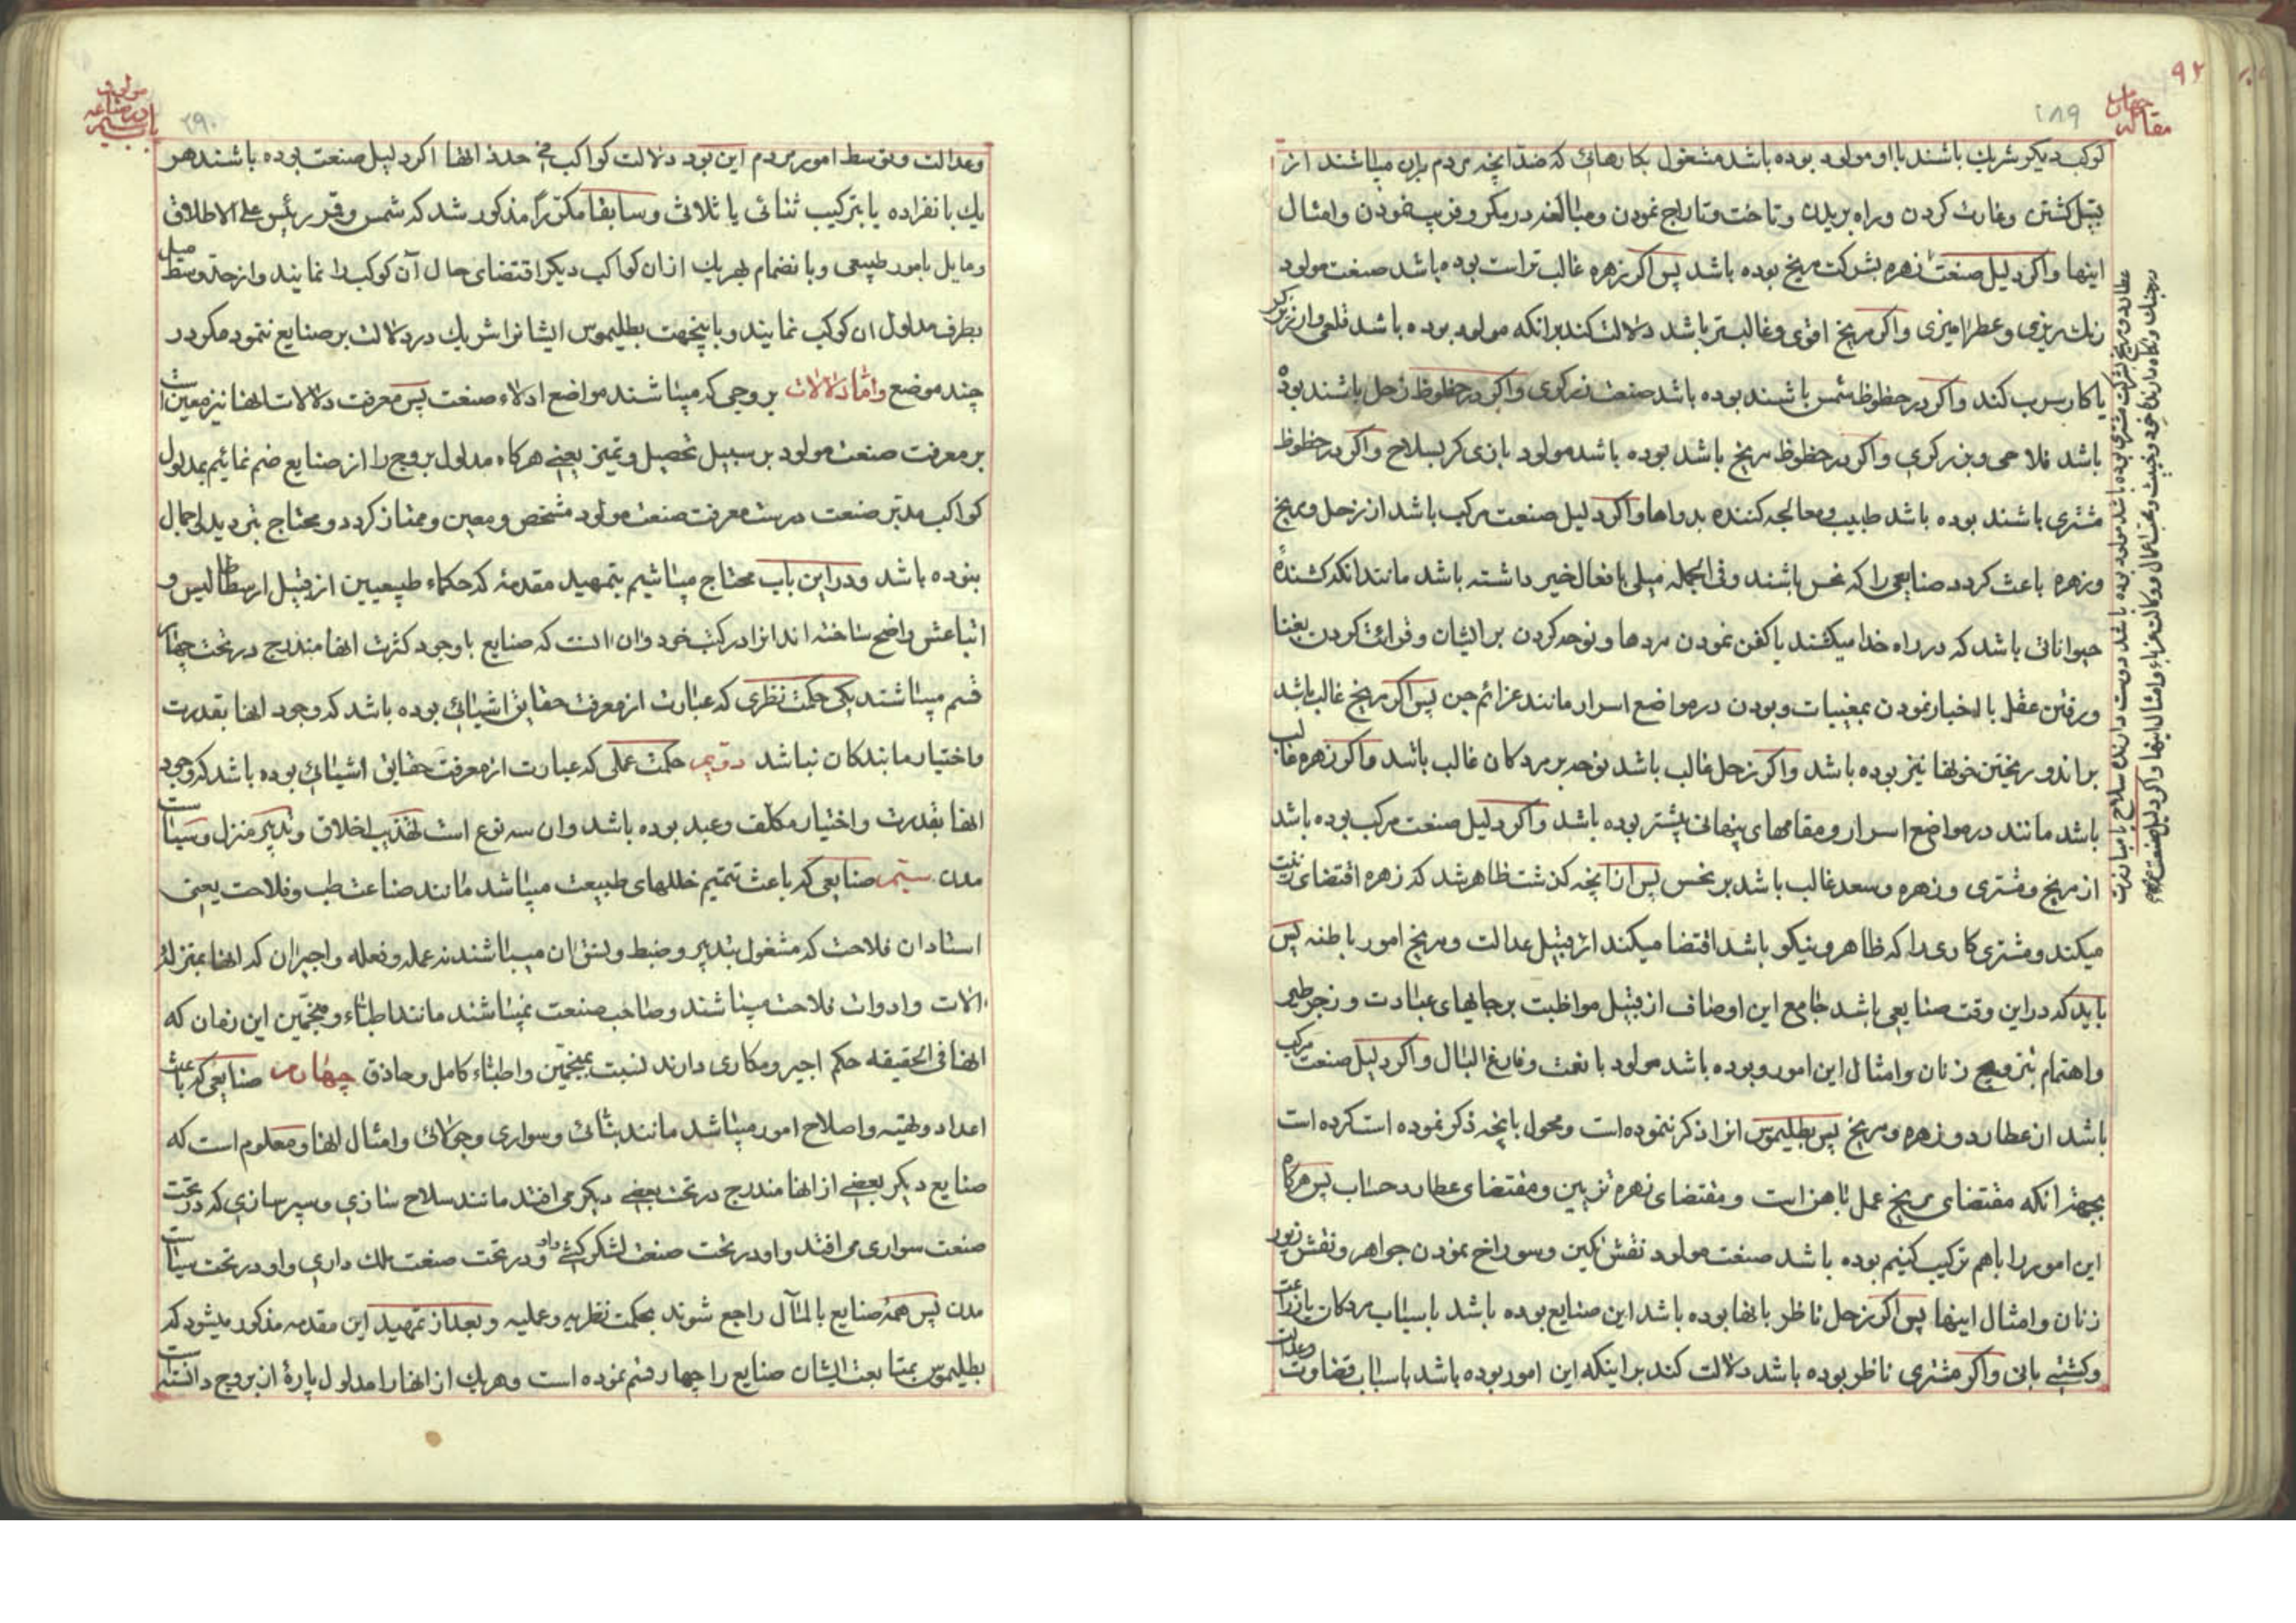 مقاله چهارم
۹۲
۲۸۹
کوکب دیکر شریك باشند با او مولود بوده باشد مشغول بکارهائی که ضد آنچه مردم بران میباشند از
قبیل کشتن وغارت کردن وراه بریدن وتاخت وتاراج نمودن ومبالغه در مکر وفریب نمودن وامثال
اینها واکر دلیل صنعت زهره بشرکت مریخ بوده باشد پس اکر زهره غالب تر است بوده باشد صنعت مولود
رنك ریزی وعطرامیزی واکر مریخ اقوی وغالبتر باشد دلالت کند برانکه مولود بوده باشد قلعی وارزیزکر
یا کار سرب کند واکر در حظوظ شمس باشند بوده باشد صنعت زرکری واکر در حظوظ زحل باشند بوده
باشد فلاحی وبزرکری واکر در حظوظ مریخ باشد بوده باشد مولود بازی کر بسلاح واکر در حظوظ
مشتری باشند بوده باشد طبیب ومعالجه کننده بدواها واکر دلیل صنعت مرکب باشد از زحل ومریخ
وزهره باعث کردد صنایعی را که نحس باشند وفی الجمله میلی بافعال خیر داشته باشد مانند انکه کشندهٔ
حیواناتی باشد که در راه خدا میکشند یا کفن نمودن مردها ونوحه کردن بر ایشان وقرائت کردن بغنا
ورفتن عقل با اخبار نمودن بمغیبات وبودن در مواضع اسرار مانند عزائم جن پس اکر مریخ غالب باشد
براندو ریختن خونها نیز بوده باشد واکر زحل غالب باشد نوحه بر مردکان غالب باشد واکر زهره غالب
باشد مانند در مواضع اسرار ومقامهای پنهانی بیشتر بوده باشد واکر دلیل صنعت مرکب بوده باشد
از مریخ ومشتری وزهره وسعد غالب باشد بر نحس پس از انچه کذشت ظاهر شد که زهره اقتضای زینت
میکند ومشتری کاری را که ظاهر ونیکو باشد اقتضا میکند از قبیل عدالت ومریخ امور باطنه پس
باید که در این وقت صنایعی باشد جامع این اوصاف از قبیل مواظبت بر جایهای عبادت وزجر طیر
واهتمام بتزویج زنان وامثال این امور وبوده باشد مولود با نعمت وفارغ البال واکر دلیل صنعت مرکب
باشد از عطارد وزهره ومریخ پس بطلیموس انرا ذکر ننموده است ومحول بانچه ذکر نموده است کرده است
بجهة انکه مقتضای مریخ عمل باهن است ومقتضای زهره تزیین ومقتضای عطارد حساب پس هرکاه
این امور را باهم ترکیب کنیم بوده باشد صنعت مولود نقش نکین وسوراخ نمودن جواهر ونقش زیور
زنان وامثال اینها پس اکر زحل ناظر بانها بوده باشد این صنایع بوده باشد باسباب مردکان یا زراعت
وکشتی بانی واکر مشتری ناظر بوده باشد دلالت کند بر اینکه این امور بوده باشد باسباب قضاوت وعدالت
عطارد ومریخ بشرکت مشتری بوده باشد مولود بوده باشد دوست دارندهٔ سلاح با مبارزت
در جنك ونکاه دارندهٔ خود وخبیث ومحتاعمال ووکالت غرباء وامثال اینها واکر دلیل صنعت
مولود
باب در صناعه
بیستم
۲۹۰
وعدالت وتوسط امور مردم این بود دلالت کواکب علی حده انها اکر دلیل صنعت بوده باشند هر
یك بانفراده یا بترکیب ثنائی یا ثلاثی وسابقا مکررا مذکور شد که شمس وقمر رئیس علی الاطلاق
ومایل بامور طبیعی وبانضمام بهریك ازان کواکب دیکر اقتضای حال آن کوکب را نمایند واز حد وسط میل
بطرف مدلول ان کوکب نمایند وباینجهت بطلیموس ایشانرا شریك در دلالت بر صنایع ننمود مکر در
چند موضع واما دلالات بروجی که میباشند مواضع ادلاء صنعت پس معرفت دلالات انها نیز معین است
بر معرفت صنعت مولود بر سبیل تحصیل وتمیز یعنی هرکاه مدلول بروج را از صنایع ضم نمائیم بمدلول
کواکب مدبر صنعت درست معرفت صنعت مولود مشخص ومعین وممتاز کردد ومحتاج بتردید اجمال
بنوده باشد ودر این باب محتاج میباشیم بتمهید مقدمهٔ که حکماء طبیعیین از قبیل ارسطاطالیس و
اتباعش واضح ساخته اند انرا در کتب خود وان انست که صنایع باوجود کثرت انها مندرج در تحت چهار
قسم میباشند یکی حکمت نظری که عبارت از معرفت حقایق اشیائی بوده باشد که وجود انها بقدرت
واختیار ما بندکان نباشد دویم حکمت عملی که عبارت از معرفت حقایق اشیائی بوده باشد که وجود
انها بقدرت واختیار مکلف وعبد بوده باشد وان سه نوع است تهذیب اخلاق وتدبیر منزل وسیاسات
مدن سیم صنایعی که باعث تتمیم خللهای طبیعت میباشد مانند صناعت طب وفلاحت یعنی
استادان فلاحت که مشغول بتدبیر وضبط ونسق ان میباشند نه عمله وفعله واجیران که انها بمنزلهٔ
الات وادوات فلاحت میباشند وصاحب صنعت نمیباشند مانند اطباء ومنجمین این زمان که
انها فی الحقیقه حکم اجیر ومکاری دارند نسبت بمنجمین واطباء کامل وحاذق چهارم صنایعی که باعث
اعداد وتهیه واصلاح امور میباشد مانند بنائی وسواری وجولائی وامثال انها ومعلوم است که
صنایع دیکر بعضی از انها مندرج در تحت بعضی دیکر می افتد مانند سلاح سازی وسپر سازی که در تحت
صنعت سواری می افتد واو در تحت صنعت لشکر کشی واو در تحت صنعت ملك داری واو در تحت سیاسات
مدن پس همهٔ صنایع بالمآل راجع شوند بحکمت نظریه وعملیه وبعد از تمهید این مقدمه مذکور میشود که
بطلیموس بمتابعت ایشان صنایع را چهار قسم نموده است وهریك از انها را مدلول پارهٔ از بروج دانسته